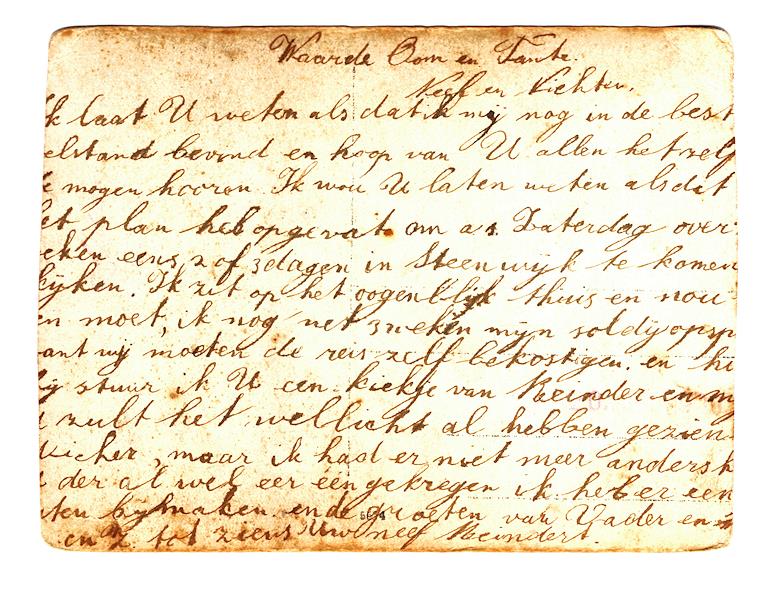 Waarde Oom en Tante.
Neef en Nichten.
Ik laat U weten als dat ik mij nog in de best
elstand bevind en hoop van U allen hetzelf
mogen hooren Ik wou U laten weten als dit
et plan heb opgevat om as Zaterdag over
eken eens 2 of 3 dagen in Steenwijk te komen
kijken. Ik zit op het oogenblik thuis en nou
en moet, ik nog net 3 weken mijn soldij opsp
ant wij moeten de reis zelf bekostigen. en hi
ij stuur ik U een kiekje van Reinder en m
zult het wellicht al hebben gezien
maar ik had er niet meer anders h
der al wel eer een gekregen ik heb er een
ten bijmaken en de groeten van Vader en
en Z tot ziens Uw neef Reindert.